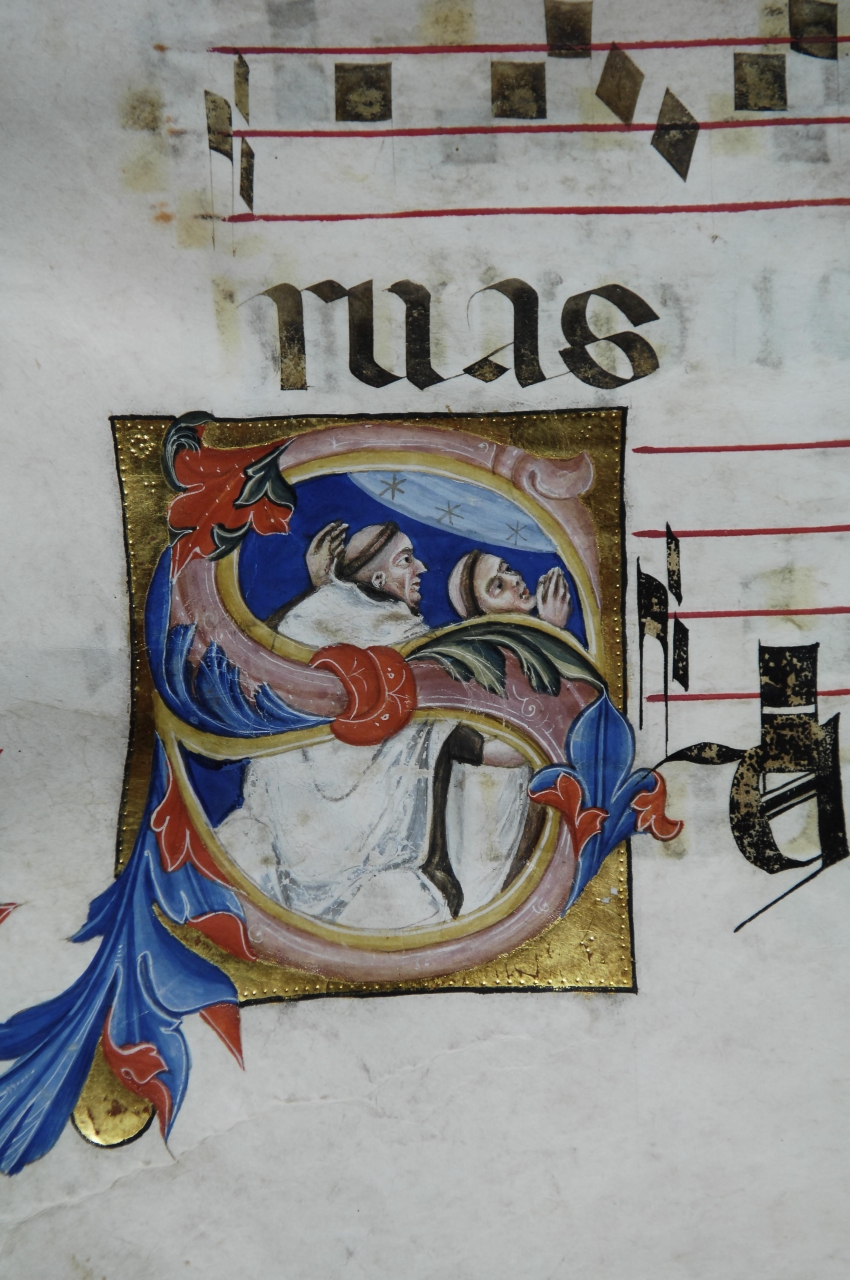 ruas
S